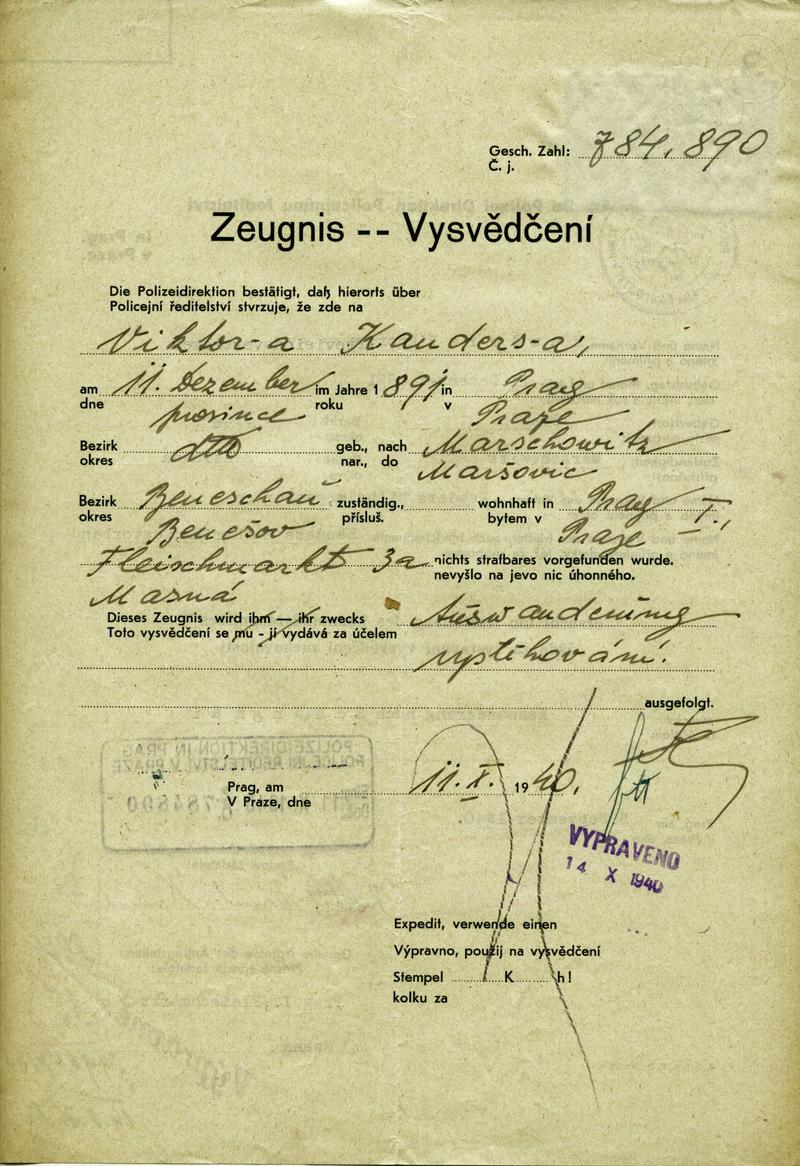 Gesch. Zahl: 784.890
Č. j.
Zeugnis -- Vysvědčení
Die Polizeidirektion bestätigt, daß hierorts über
Policejní ředitelství stvrzuje, že zde na
Viktor-a Kanders-a,
am 11. Dezember im Jahre 1891 in Prag
dne prosince roku v Praze
Bezirk dtto geb., nach Marschowitz
okres nar., do Maršovic
Bezirk Beneschau zuständig., wohnhaft in Prag I.,
okres Benešov přísluš. bytem v Praze
Fleischmarkt 3a nichts strafbares vorgefunden wurde.
Masná nevyšlo na jevo nic úhonného.
Dieses Zeugnis wird ihm — ihr zwecks Auswanderung
Toto vysvědčení se mu - jí vydává za účelem
vystěhování.
ausgefolgt.
Prag, am 11.X. 1940.
V Praze, dne
VYPRAVENO
14 X 1940
Expedit, verwende einen
Výpravno, použij na vysvědčení
Stempel K h!
kolku za